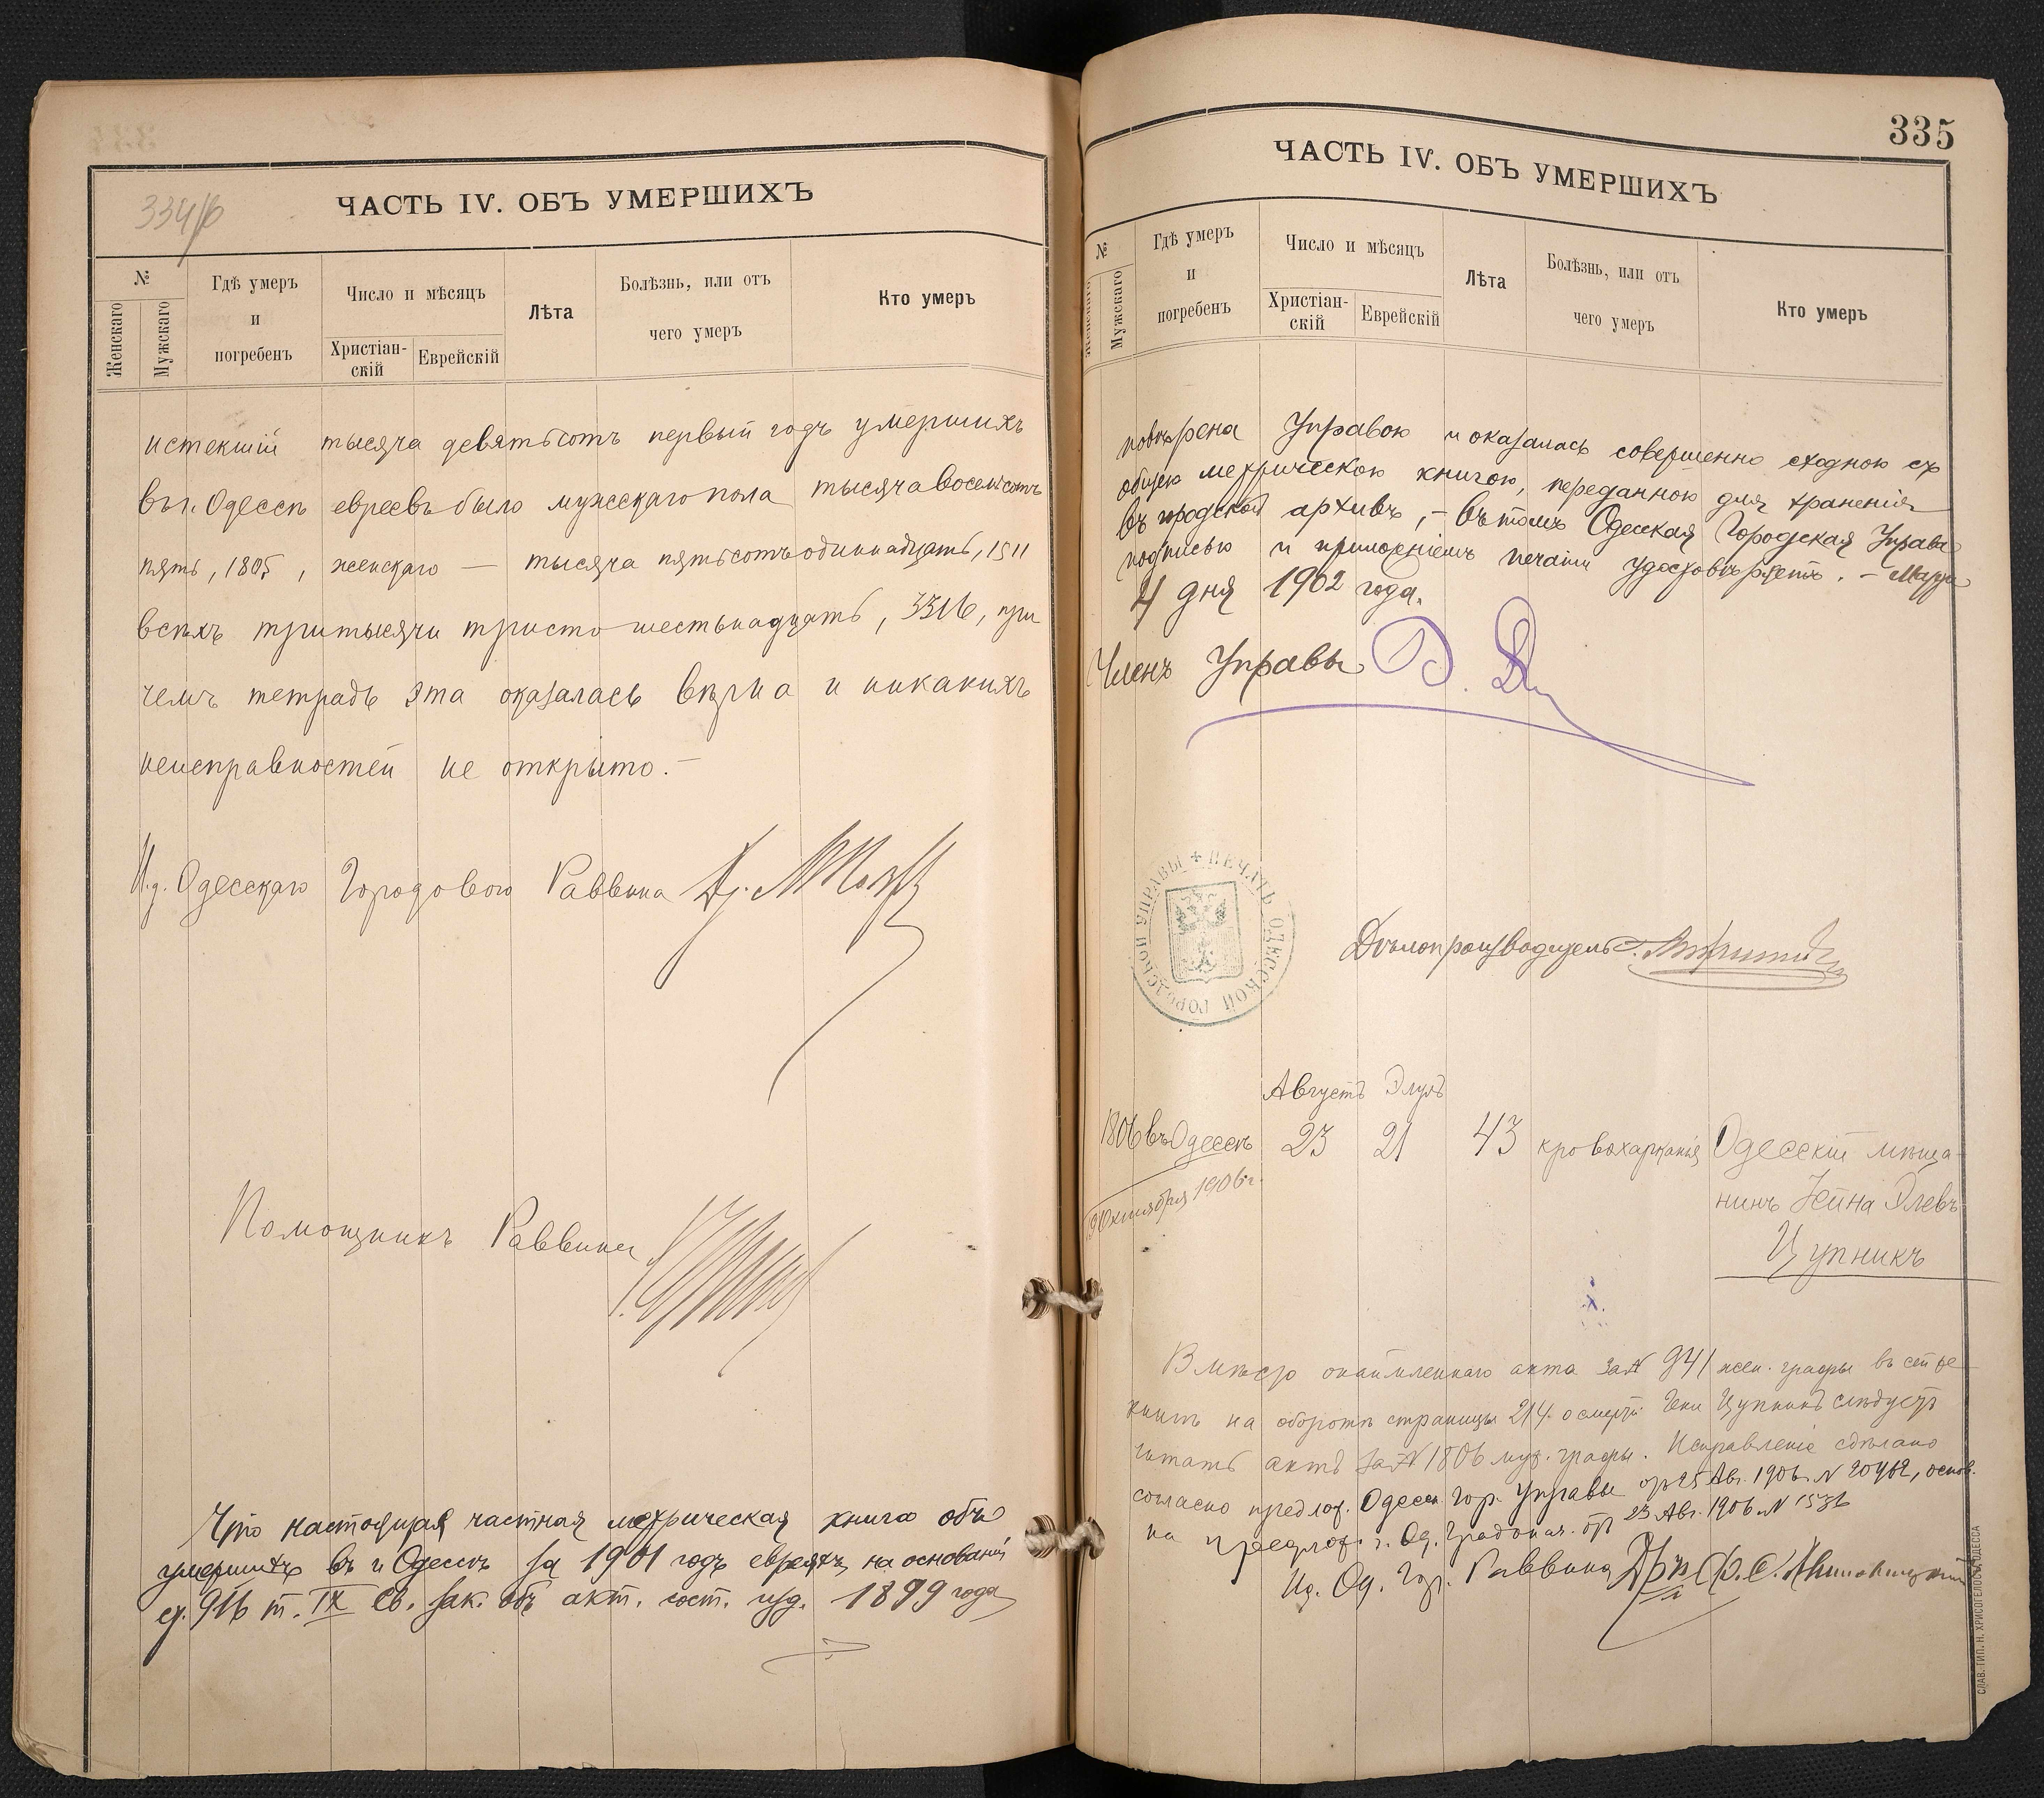 334/б
ЧАСТЬ IV. ОБЪ УМЕРШИХЪ
№
Женскаго
Мужскаго
Гдѣ умеръ
и
погребенъ
Число и мѣсяцъ
Христіан-
скій
Еврейскій
Лѣта
Болѣзнь, или отъ
чего умеръ
Кто умеръ
истекшій тысяча девятьсотъ первый годъ умершихъ
въ г. Одессѣ евреевъ было мужескаго пола тысяча восемьсотъ
пять, 1805, женскаго — тысяча пятьсотъ одиннадцать, 1511
всѣхъ три тысячи триста шестьнадцать, 3316, при
чемъ тетрадь эта оказалась вѣрна и никакихъ
неисправностей не открыто. —
И.д. Одесскаго Городового Раввина Др.
Помощникъ Раввина
Что настоящая частная метрическая книга объ
умершихъ въ г. Одессѣ за 1901 годъ евреяхъ, на основаніи
ст. 916 т. IX Св. Зак. объ акт. сост. изд. 1899 года
335
ЧАСТЬ IV. ОБЪ УМЕРШИХЪ
№
Женскаго
Мужскаго
Гдѣ умеръ
и
погребенъ
Число и мѣсяцъ
Христіан-
скій
Еврейскій
Лѣта
Болѣзнь, или отъ
чего умеръ
Кто умеръ
повѣрена Управою и оказалась совершенно сходною съ
общею метрическою книгою, переданною для храненія
въ городской архивъ, — въ томъ Одесская Городская Управа
подписью и приложеніемъ печати удостовѣряетъ. — Марта
4 дня 1902 года.
Членъ Управы
ПЕЧАТЬ ОДЕССКОЙ ГОРОДСКОЙ УПРАВЫ
Дѣлопроизводитель
Августъ Элулъ
1806 въ Одессѣ 23 21 43 кровохарканія Одесскій мѣща-
нинъ Хейна Элевъ
Цупникъ
1906 г.
Вмѣсто акта за № 941 жен. графы въ сей же
книгѣ на оборотѣ страницы 214 о смерти Цупникъ слѣдуетъ
читать актъ за № 1806 муж. графы. Исправленіе сдѣлано
согласно предлож. Одесск. Гор. Управы отъ 25 Авг. 1906 № 20462, основ.
на предлож. г. Од. Градонач. отъ 23 Авг. 1906 № 1536
Ид. Од. Гор. Раввина
СЛАВ. ТИП. Н. ХРИСОГЕЛОСЪ, ОДЕССА